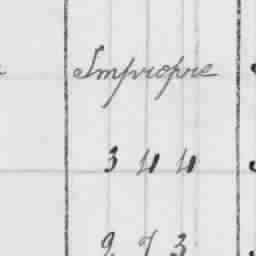 Impropre
3 4 4
9 7 3